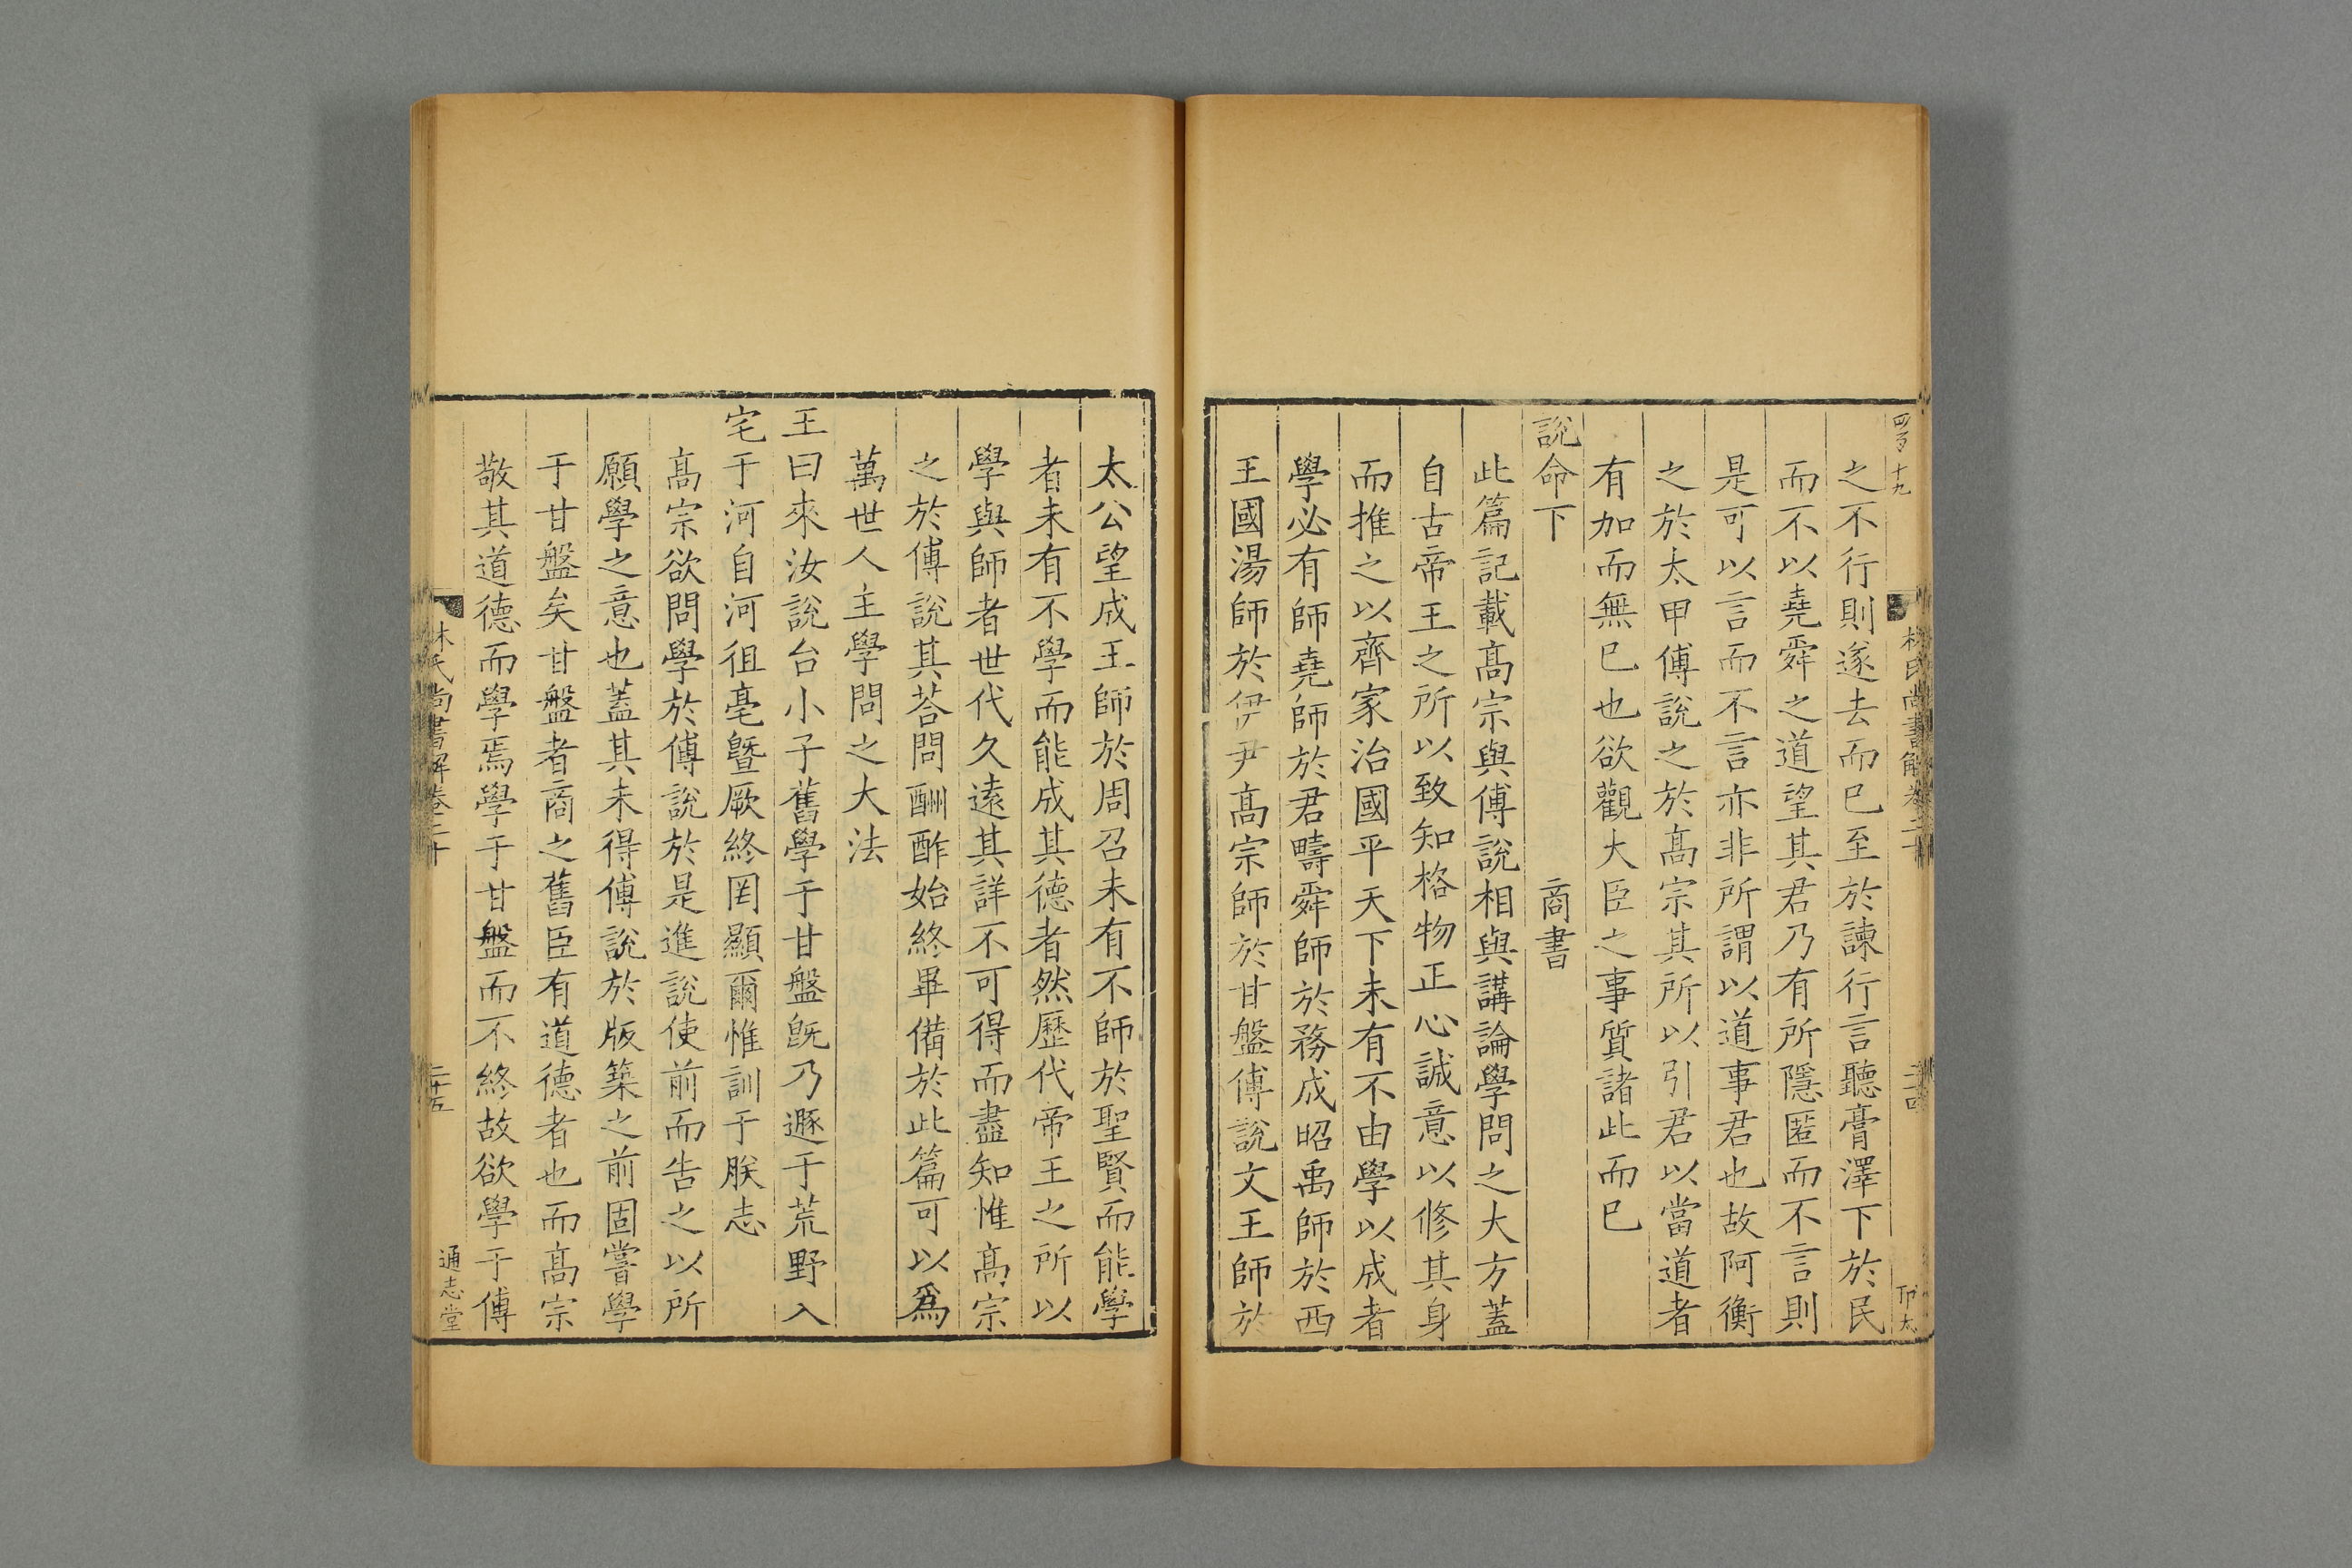 四百十九
林氏尚書解卷二十
二十四
之不行則遂去而已至於諫行言聽膏澤下於民
而不以堯舜之道望其君乃有所隱匿而不言則
是可以言而不言亦非所謂以道事君也故阿衡
之於太甲傅說之於高宗其所以引君以當道者
有加而無已也欲觀大臣之事質諸此而已
說命下 商書
此篇記載高宗與傅說相與講論學問之大方蓋
自古帝王之所以致知格物正心誠意以修其身
而推之以齊家治國平天下未有不由學以成者
學必有師堯師於君疇舜師於務成昭禹師於西
王國湯師於伊尹高宗師於甘盤傅說文王師於
太公望成王師於周召未有不師於聖賢而能學
者未有不學而能成其德者然歷代帝王之所以
學與師者世代久遠其詳不可得而盡知惟高宗
之於傅說其荅問酬酢始終畢備於此篇可以爲
萬世人主學問之大法
王曰來汝說台小子舊學于甘盤旣乃遯于荒野入
宅于河自河徂亳曁厥終罔顯爾惟訓于朕志
高宗欲問學於傅說於是進說使前而告之以所
願學之意也蓋其未得傅說於版築之前固嘗學
于甘盤矣甘盤者商之舊臣有道德者也而高宗
敬其道德而學焉學于甘盤而不終故欲學于傅
林氏尚書解卷二十
二十五
通志堂